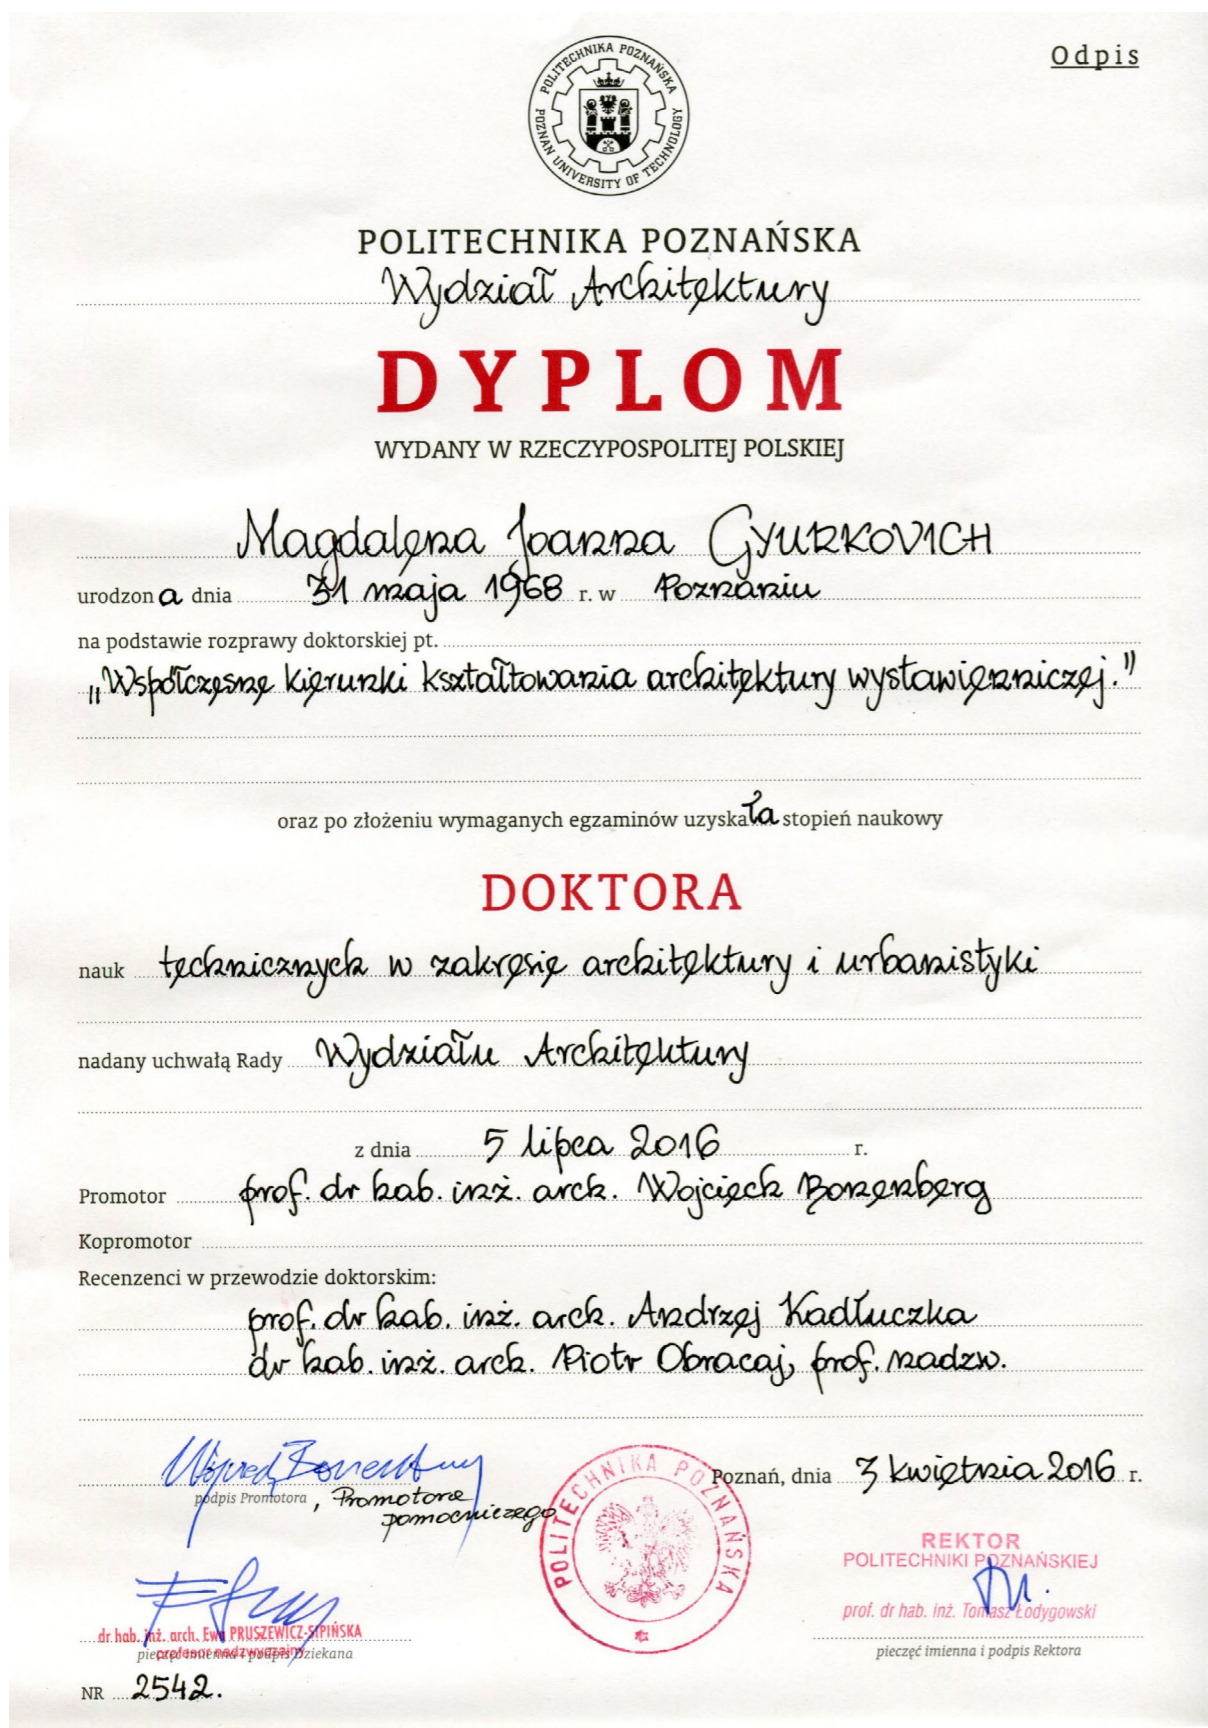 Odpis
POLITECHNIKA POZNAŃSKA
POZNAN UNIVERSITY OF TECHNOLOGY
POLITECHNIKA POZNAŃSKA
Wydział Architektury
DYPLOM
WYDANY W RZECZYPOSPOLITEJ POLSKIEJ
Magdalena Joanna GYURKOVICH
urodzona dnia 31 maja 1968 r. w Poznaniu
na podstawie rozprawy doktorskiej pt.
„Współczesne kierunki kształtowania architektury wystawienniczej."
oraz po złożeniu wymaganych egzaminów uzyskała stopień naukowy
DOKTORA
nauk technicznych w zakresie architektury i urbanistyki
nadany uchwałą Rady Wydziału Architektury
z dnia 5 lipca 2016 r.
Promotor prof. dr hab. inż. arch. Wojciech Bonenberg
Kopromotor
Recenzenci w przewodzie doktorskim:
prof. dr hab. inż. arch. Andrzej Kadłuczka
dr hab. inż. arch. Piotr Obracaj, prof. nadzw.
Poznań, dnia 3 kwietnia 2016 r.
podpis Promotora, Promotora
pomocniczego
POLITECHNIKA POZNAŃSKA
REKTOR
POLITECHNIKI POZNAŃSKIEJ
prof. dr hab. inż. Tomasz Łodygowski
pieczęć imienna i podpis Rektora
dr hab. inż. arch. Ewa PRUSZEWICZ-SIPIŃSKA
profesor nadzwyczajny
pieczęć imienna i podpis Dziekana
NR 2542.